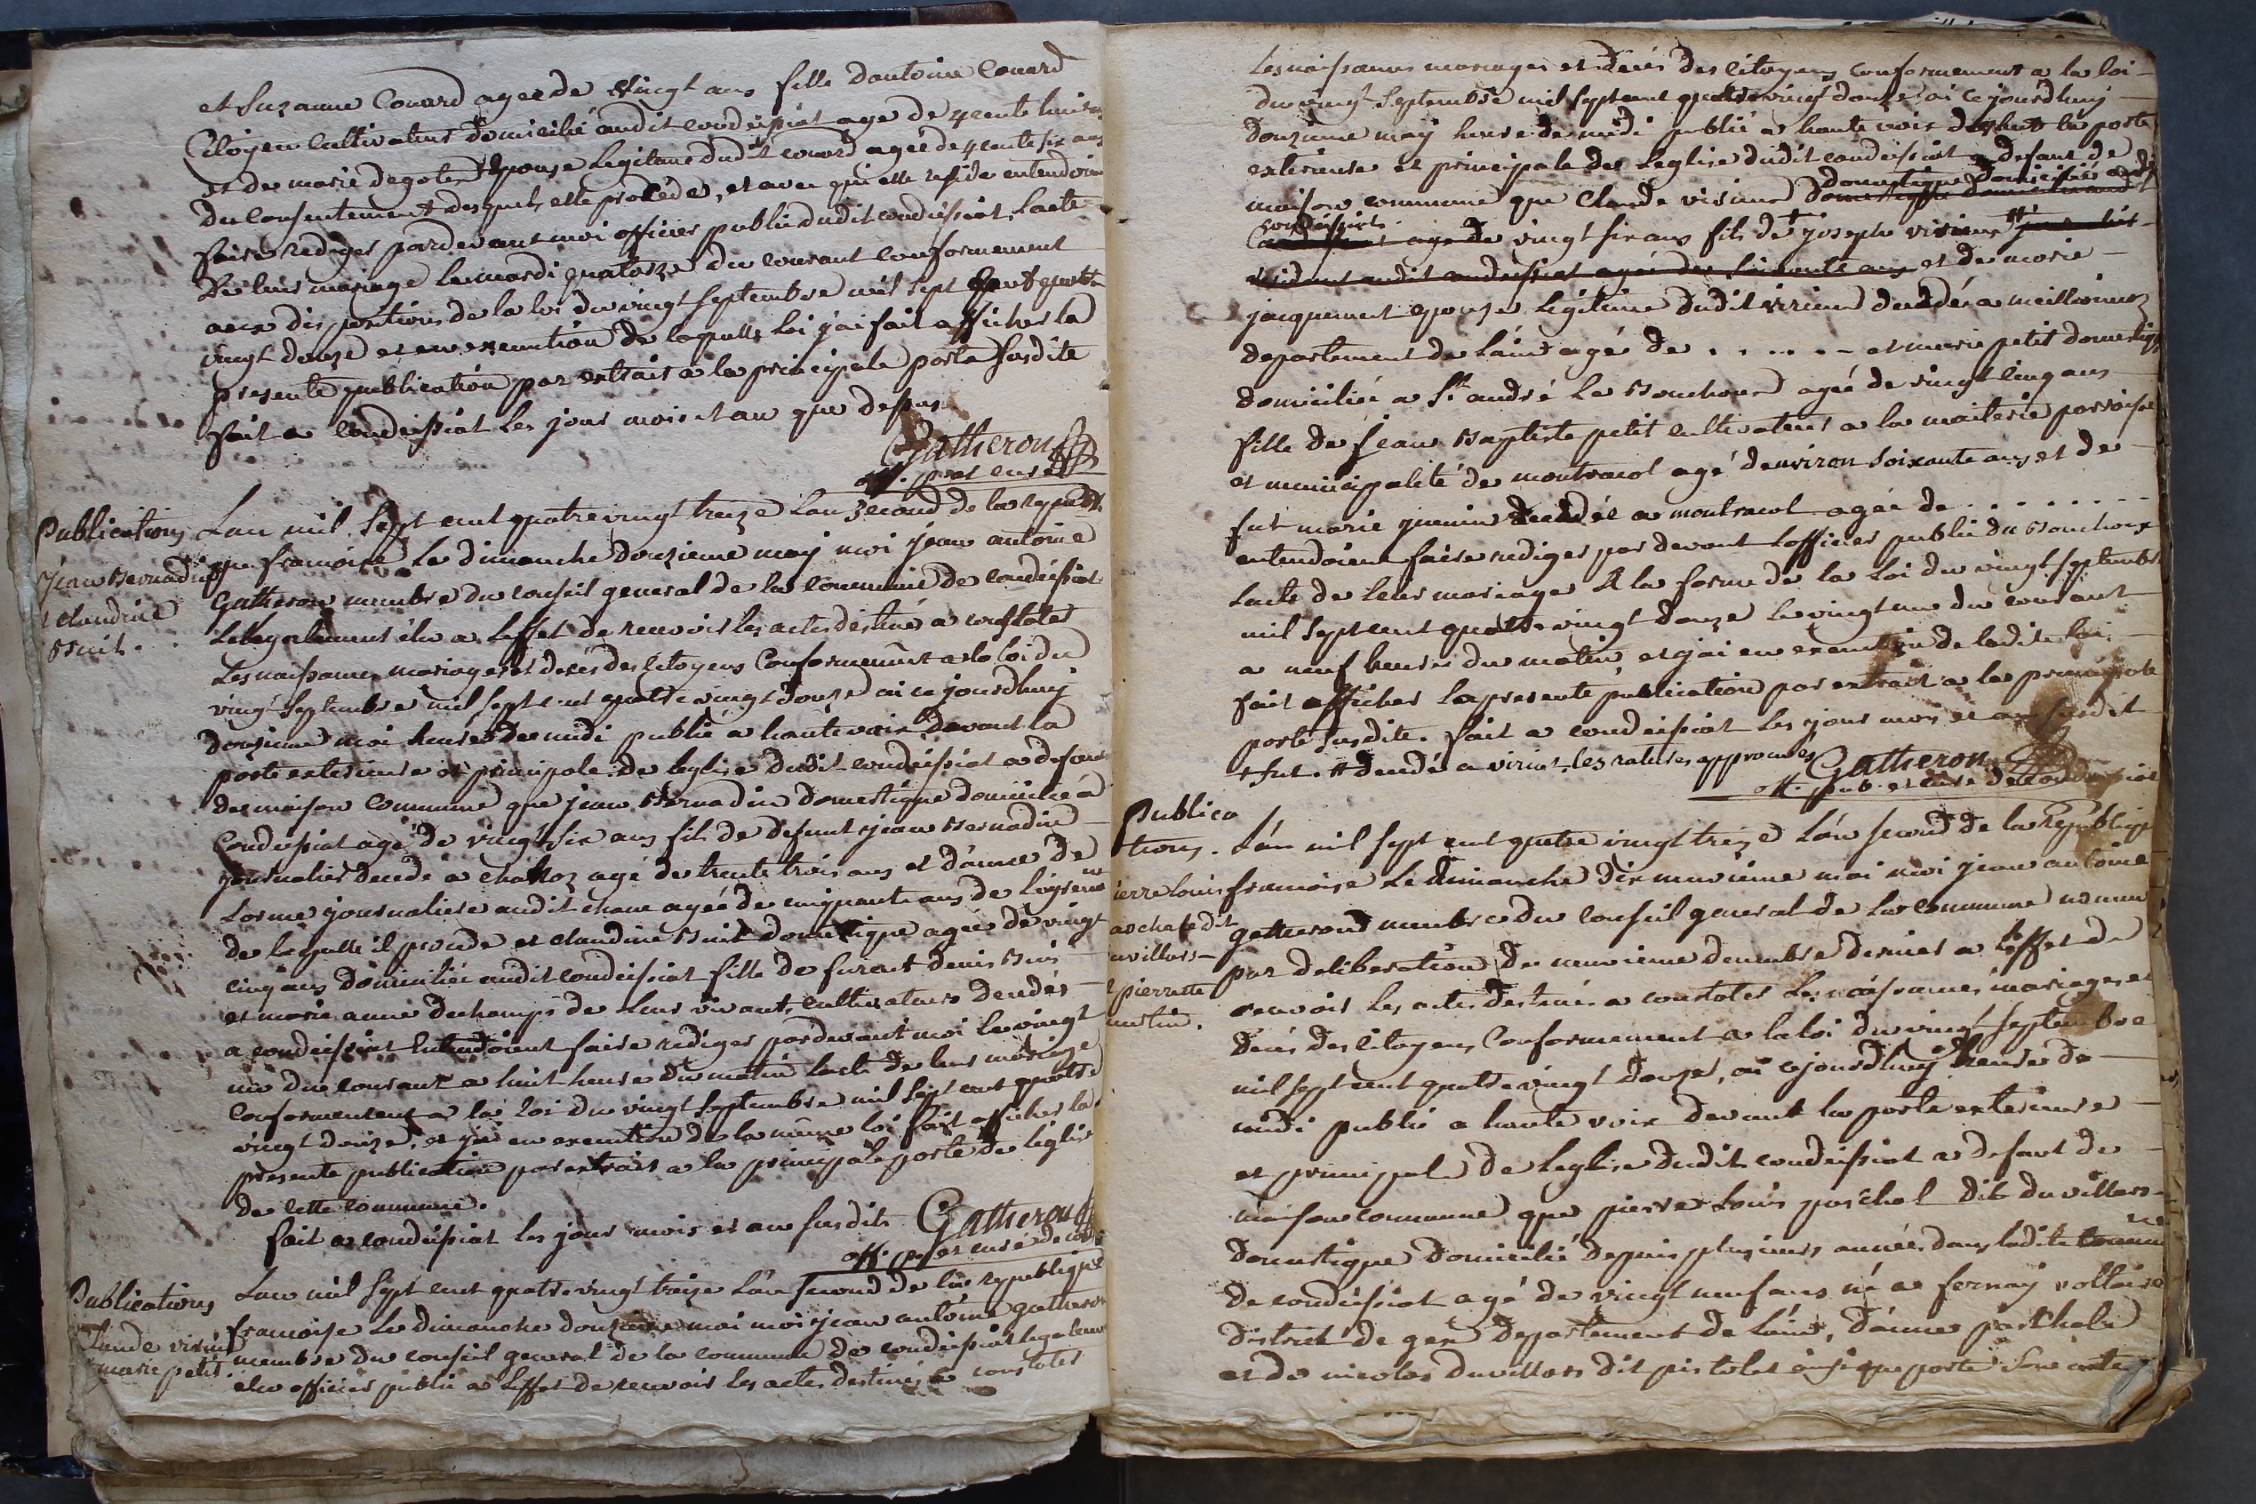 et Suzanne Couard agée de vingt ans fille dantoine Couard
Citoyen Cultivateur domicilié audit condeissiat age de quarente huit ans
et de marie degoten epouse legitime dudit couard agée de quarente six ans
du consentement desquels elle procède, et avec qui elle reside entendoient
faire rediger pardevant moi officier public dudit condeissiat, lacte
De leur mariage le mardi quatorze du courant conformement
aux dispositions de la loi du vingt septembre mil sept cent quatre
vingt douze et en execution de laquelle loi j'ai fait afficher la
presente publication par extrait a la principale porte susdite
fait a Condeissiat les jour mois et an que dessus
Gatheron
off. p. et curé
Publications
jean Bernadin
et claudine
Buit.
Lan mil sept cent quatre vingt treize Lan second de la republi
que françoise Le dimanche douzieme may moi jean antoine
Gatheron membre du conseil general de la commune de condeissiat
et legalement élu a Leffet de recevoir les actes destinés a constater
Les naissances mariages et decès des citoyens Conformement a la loi du
vingt septembre mil sept cent quatre vingt douze ai ce jourdhuy
douzieme mai heure de midi publié a haute voix devant la
porte exterieure et principale de leglise dudit condeissiat a defaut
de maison commune que jean Bernadin domestique domicilié a
Condeissiat agé de vingt six ans fils de defunt jean Bernadin
journalier decedé a chanoz agé de trente trois ans et d'anne de
Lorme journaliere audit chane agée de cinquante ans de
de laquelle il procede et claudine Buit domestique agée de vingt
cinq ans domiciliée audit condeissiat fille de furent denis Buit
et marie anne dechamps de leur vivant cultivateurs decedés
a condeissiat Entendoient faire rediger pardevant moi le vingt
un du courant a huit heure du matin lacte de leur mariage
Conformement a la loi du vingt septembre mil sept cent quatre
vingt douze, et j'ai en execution de la même loi fait afficher la
presente publication par extrait a la principale porte de leglise
de cette commune.
fait a condeissiat les jour mois et an susdits Gatheron
off. p. et curé de cond
Publications
Claude virieux
marie petit
Lan mil sept cent quatre vingt treize Lan second de la republique
françoise Le dimanche douzieme mai moi jean antoine gatheron
membre du conseil general de la commune de condeissiat legalement
elu officier public a Leffet de recevoir les actes destinés a constater
Les naissances mariages et decès des citoyens conformement a la loi
du vingt septembre mil sept cent quatre vingt douze ai ce jourdhuy
douzieme may heure de midi publié a haute voix devant la porte
exterieure et principale de Leglise dudit condeissiat a defaut de
domestique domicilié audit
maison commune que Claude virieux
condeissiat
age de vingt six ans fils de + joseph virieux #
residant audit condeissiat agé de soixante ans et de marie
jacquemet epouse legitime dudit virieux decedée a meillonnaz
departement de lain agée de . . . . . et marie petit domestique
domiciliée a St andré Le Bouchoux agée de vingt cinq ans
fille de jean Baptiste petit cultivateur a la maiterie parroisse
et municipalité de montracol agé d'environ soixante ans et de
fut marie decedée a montracol agée de . . . . . . . .
entendoient faire rediger par devant Lofficier public du Bouchoux
Lacte de leur mariage A la forme de la Loi du vingt septembre
mil sept cent quatre vingt douze le vingt un du courant
a neuf heures du matin, et j'ai en execution de ladite loi
fait afficher la presente publication par extrait a la principale
porte susdite. fait a condeissiat les jour mois et an susdit
+ fut. # decedé a les ratures approuvées Gatheron
off. pub. et curé de Condeissiat
Publica
tions.
ierre louis
aschal dit
uvillars
pierrette
Lan mil sept cent quatre vingt treize Lan second de la republique
françoise Le dimanche dix neuvieme mai moi jean antoine
gatheron membre du conseil general de la commune nommé
par deliberation du neuvieme decembre dernier a Leffet de
recevoir les actes destinés a constater Les naissances, mariages et
decès des citoyens Conformement a la loi du vingt septembre
mil sept cent quatre vingt douze, ai ce jourdhuy heure de
midi publié a haute voix devant la porte exterieure
et principale de Leglise dudit condeissiat a defaut de
maison commune que pierre Louis paschal dit duvillars
domestique domicilié depuis plusieurs années dans ladite commune
de condeissiat agé de vingt neuf ans né a fernay voltaire
district de gex departement de Lain, d'anne paschale
et de nicolas duvillars dit pistolet ainsi que porte son acte